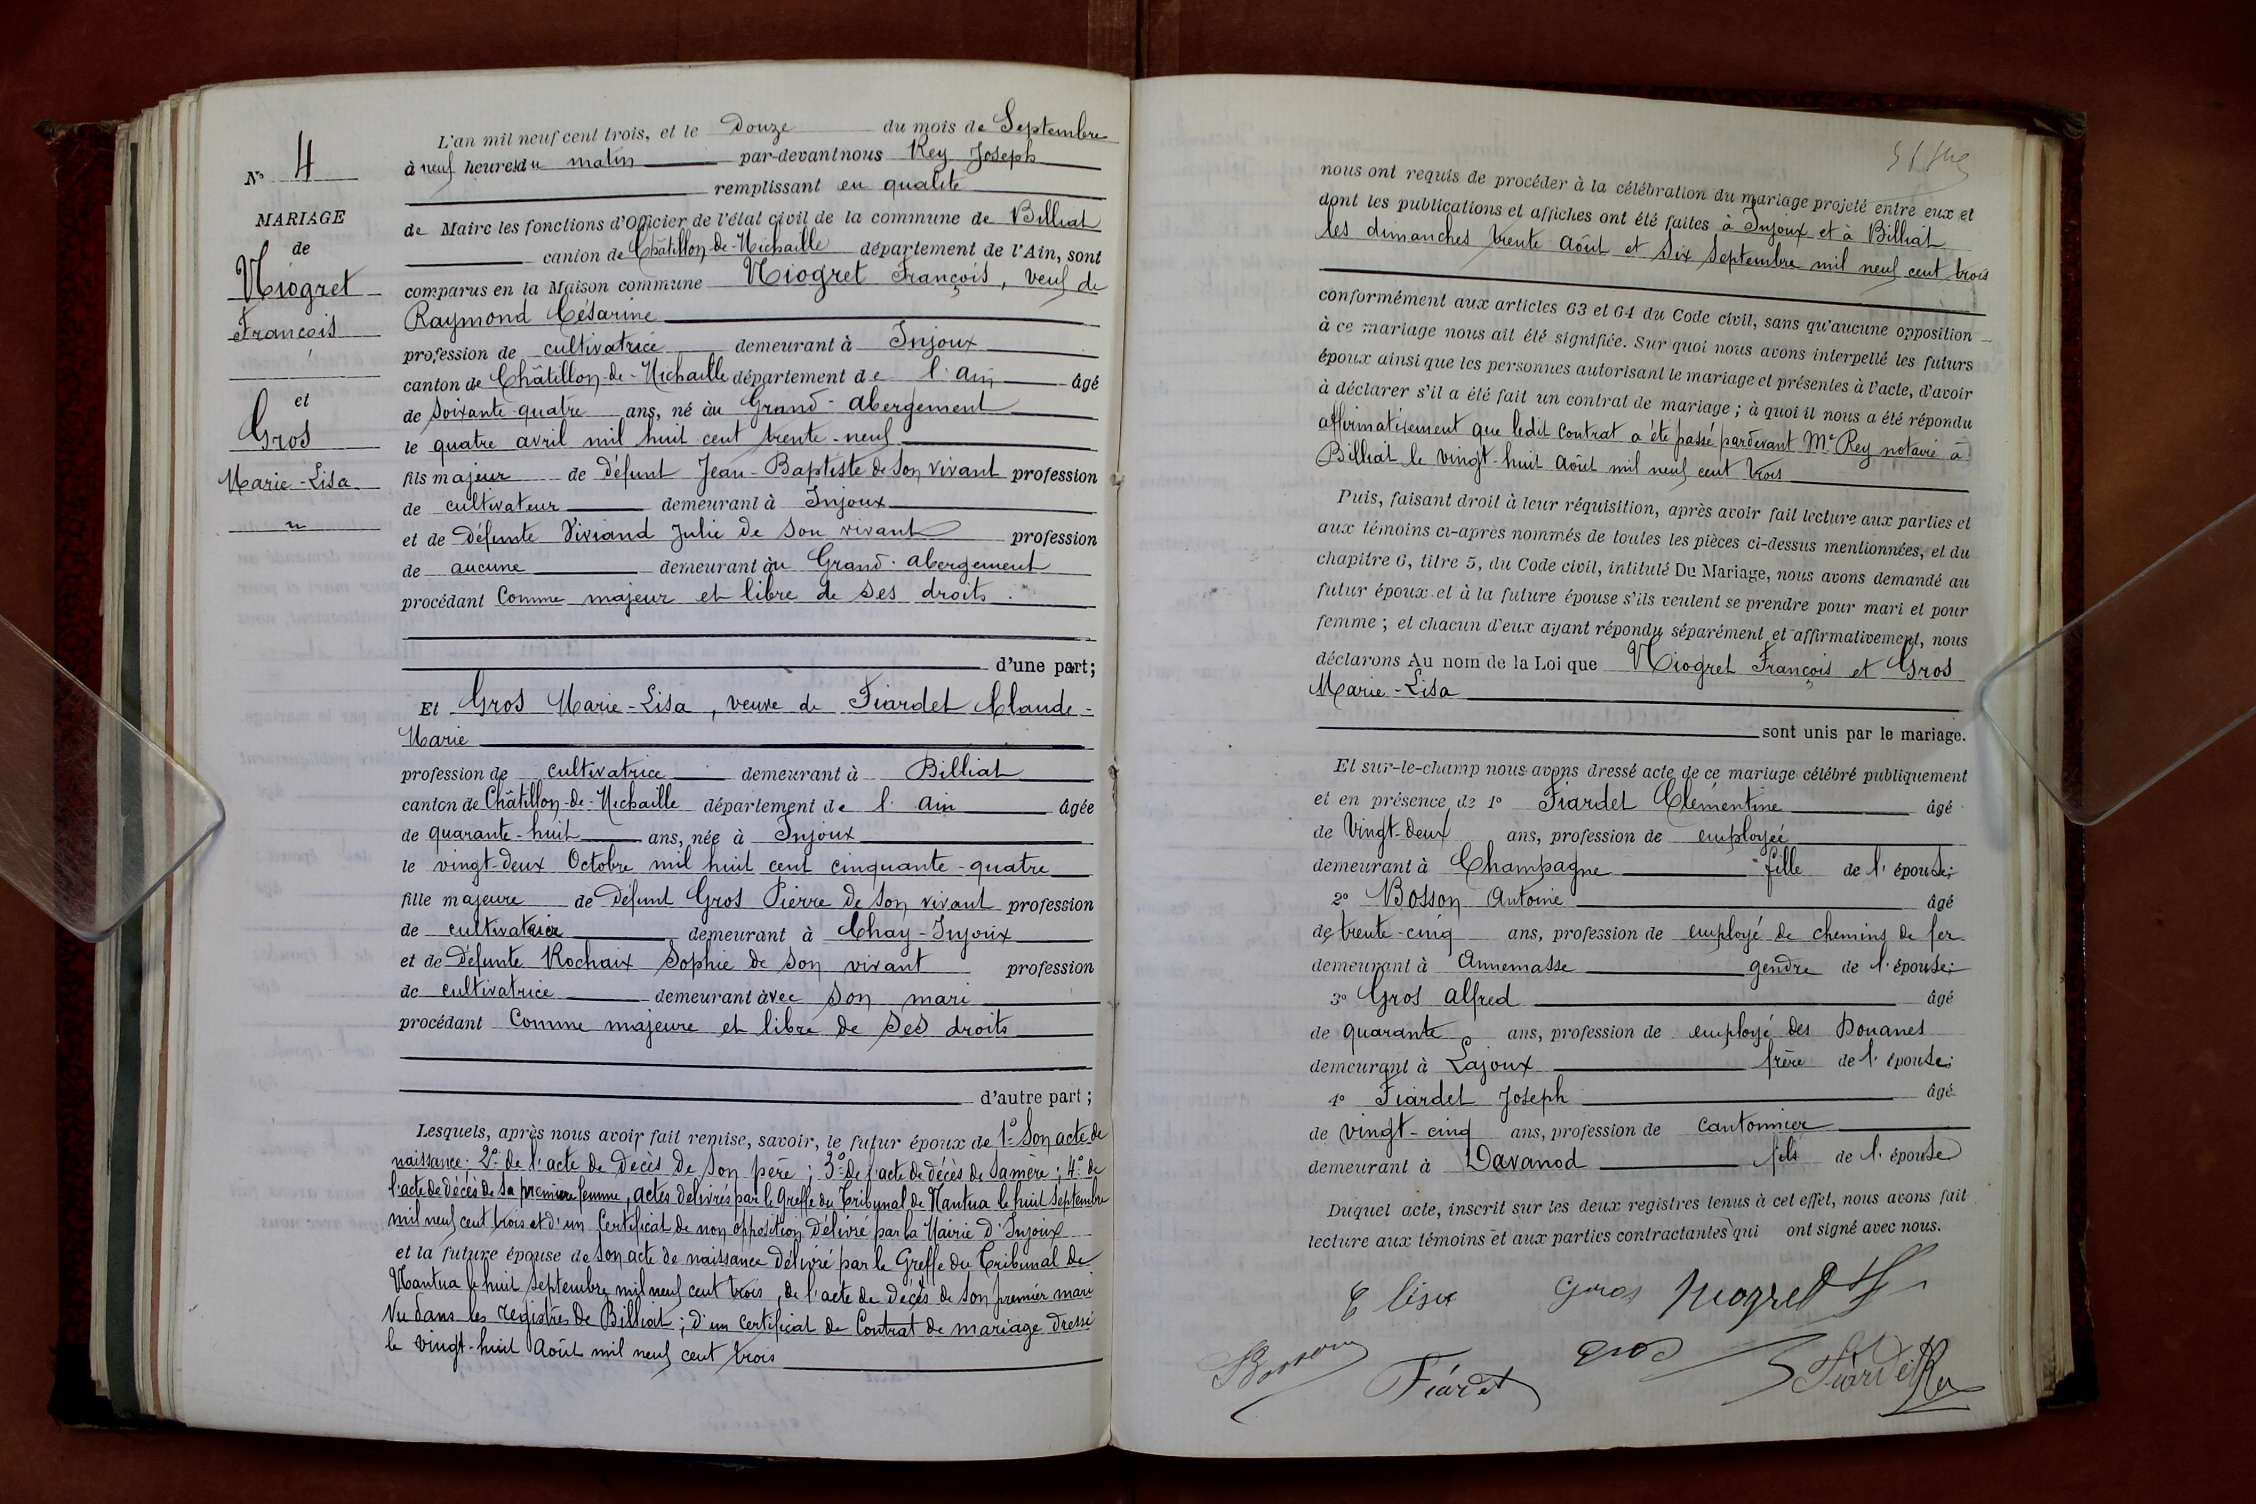 N° 4
MARIAGE
de
Niogret
François
et
Gros
Marie-Lisa
L'an mil neuf cent trois, et le douze du mois de Septembre
à neuf heures du matin par-devant nous Rey Joseph
remplissant en qualité
de Maire les fonctions d'Officier de l'état civil de la commune de Billiat
canton de Châtillon-de-Michaille département de l'Ain, sont
comparus en la Maison commune Niogret François, veuf de
Raymond Césarine
profession de cultivatrice demeurant à Injoux
canton de Châtillon-de-Michaille département de l'Ain âgé
de soixante-quatre ans, né au Grand-Abergement
le quatre avril mil huit cent trente-neuf
fils majeur de défunt Jean-Baptiste de son vivant profession
de cultivateur demeurant à Injoux
et de défunte Viviand Julie de son vivant profession
de aucune demeurant au Grand-Abergement
procédant comme majeur et libre de ses droits.
d'une part;
Et Gros Marie-Lisa, veuve de Fiardet Claude-
Marie
profession de cultivatrice demeurant à Billiat
canton de Châtillon-de-Michaille département de l'Ain âgée
de quarante-huit ans, née à Injoux
le vingt-deux Octobre mil huit cent cinquante-quatre
fille majeure de défunt Gros Pierre de son vivant profession
de demeurant à Chay-Injoux
et de défunte Rochaix Sophie de son vivant profession
de cultivatrice demeurant avec son mari
procédant comme majeure et libre de ses droits
d'autre part;
Lesquels, après nous avoir fait remise, savoir, le futur époux de 1° son acte de
naissance; 2° de l'acte de décès de son père; 3° de l'acte de décès de sa mère; 4° de
l'acte de décès de sa première femme, actes délivrés par le Greffe du Tribunal de Nantua le huit Septembre
mil neuf cent trois et d'un certificat de non opposition délivré par la Mairie d'Injoux
et la future épouse de son acte de naissance délivré par le Greffe du Tribunal de
Nantua le huit septembre mil neuf cent trois, de l'acte de décès de son premier mari
vu dans les registres de Billiat; d'un certificat de Contrat de mariage dressé
le vingt-huit Août mil neuf cent trois
nous ont requis de procéder à la célébration du mariage projeté entre eux et
dont les publications et affiches ont été faites à Injoux et à Billiat
les dimanches trente Août et six Septembre mil neuf cent trois
conformément aux articles 63 et 64 du Code civil, sans qu'aucune opposition
à ce mariage nous ait été signifiée. Sur quoi nous avons interpellé les futurs
époux ainsi que les personnes autorisant le mariage et présentes à l'acte, d'avoir
à déclarer s'il a été fait un contrat de mariage; à quoi il nous a été répondu
affirmativement que ledit contrat a été passé pardevant Me Rey notaire à
Billiat le vingt-huit Août mil neuf cent trois
Puis, faisant droit à leur réquisition, après avoir fait lecture aux parties et
aux témoins ci-après nommés de toutes les pièces ci-dessus mentionnées, et du
chapitre 6, titre 5, du Code civil, intitulé Du Mariage, nous avons demandé au
futur époux et à la future épouse s'ils veulent se prendre pour mari et pour
femme; et chacun d'eux ayant répondu séparément et affirmativement, nous
déclarons Au nom de la Loi que Niogret François et Gros
Marie-Lisa
sont unis par le mariage.
Et sur-le-champ nous avons dressé acte de ce mariage célébré publiquement
et en présence de 1° Fiardet Clémentine âgé
de vingt-deux ans, profession de employée
demeurant à Champagne fille de l'épouse;
2° Bosson Antoine âgé
de trente-cinq ans, profession de employé de chemins de fer
demeurant à Annemasse gendre de l'épouse;
3° Gros Alfred âgé
de quarante ans, profession de employé des Douanes
demeurant à Lajoux frère de l'épouse;
4° Fiardet Joseph âgé
de vingt-cinq ans, profession de cantonnier
demeurant à Davanod fils de l'épouse
Duquel acte, inscrit sur les deux registres tenus à cet effet, nous avons fait
lecture aux témoins et aux parties contractantes qui ont signé avec nous.
Gros Niogret
Bosson Fiardet Gros Fiardet Rey